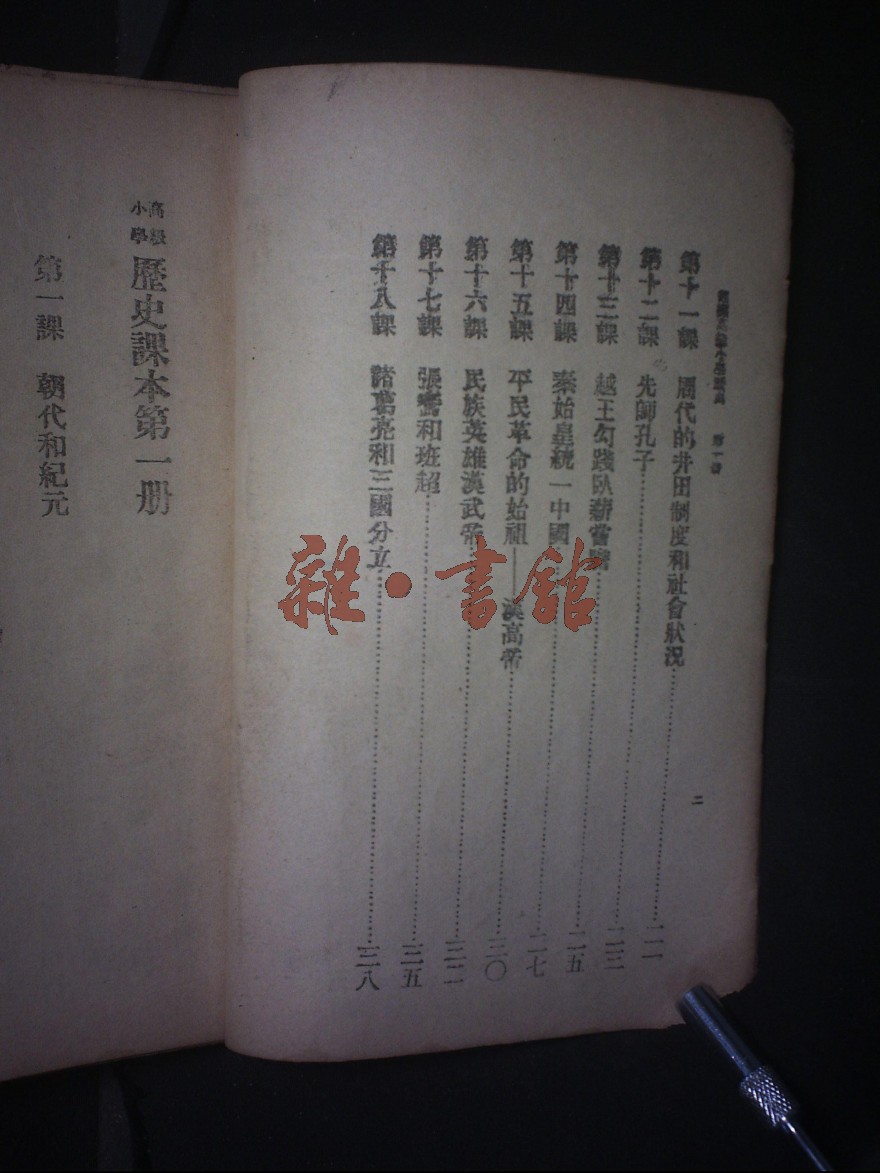 第一冊
二
第十一課 周代的井田制度和社會狀況
第十二課 先師孔子 二一
第十三課 越王勾踐臥薪嘗膽 二三
第十四課 秦始皇統一中國 二五
第十五課 平民革命的始祖——漢高帝 二七
第十六課 民族英雄漢武帝 三〇
第十七課 張騫和班超 三二
第十八課 諸葛亮和三國分立 三五
三八
高級小學 歷史課本第一册
第一課 朝代和紀元
雜·書館